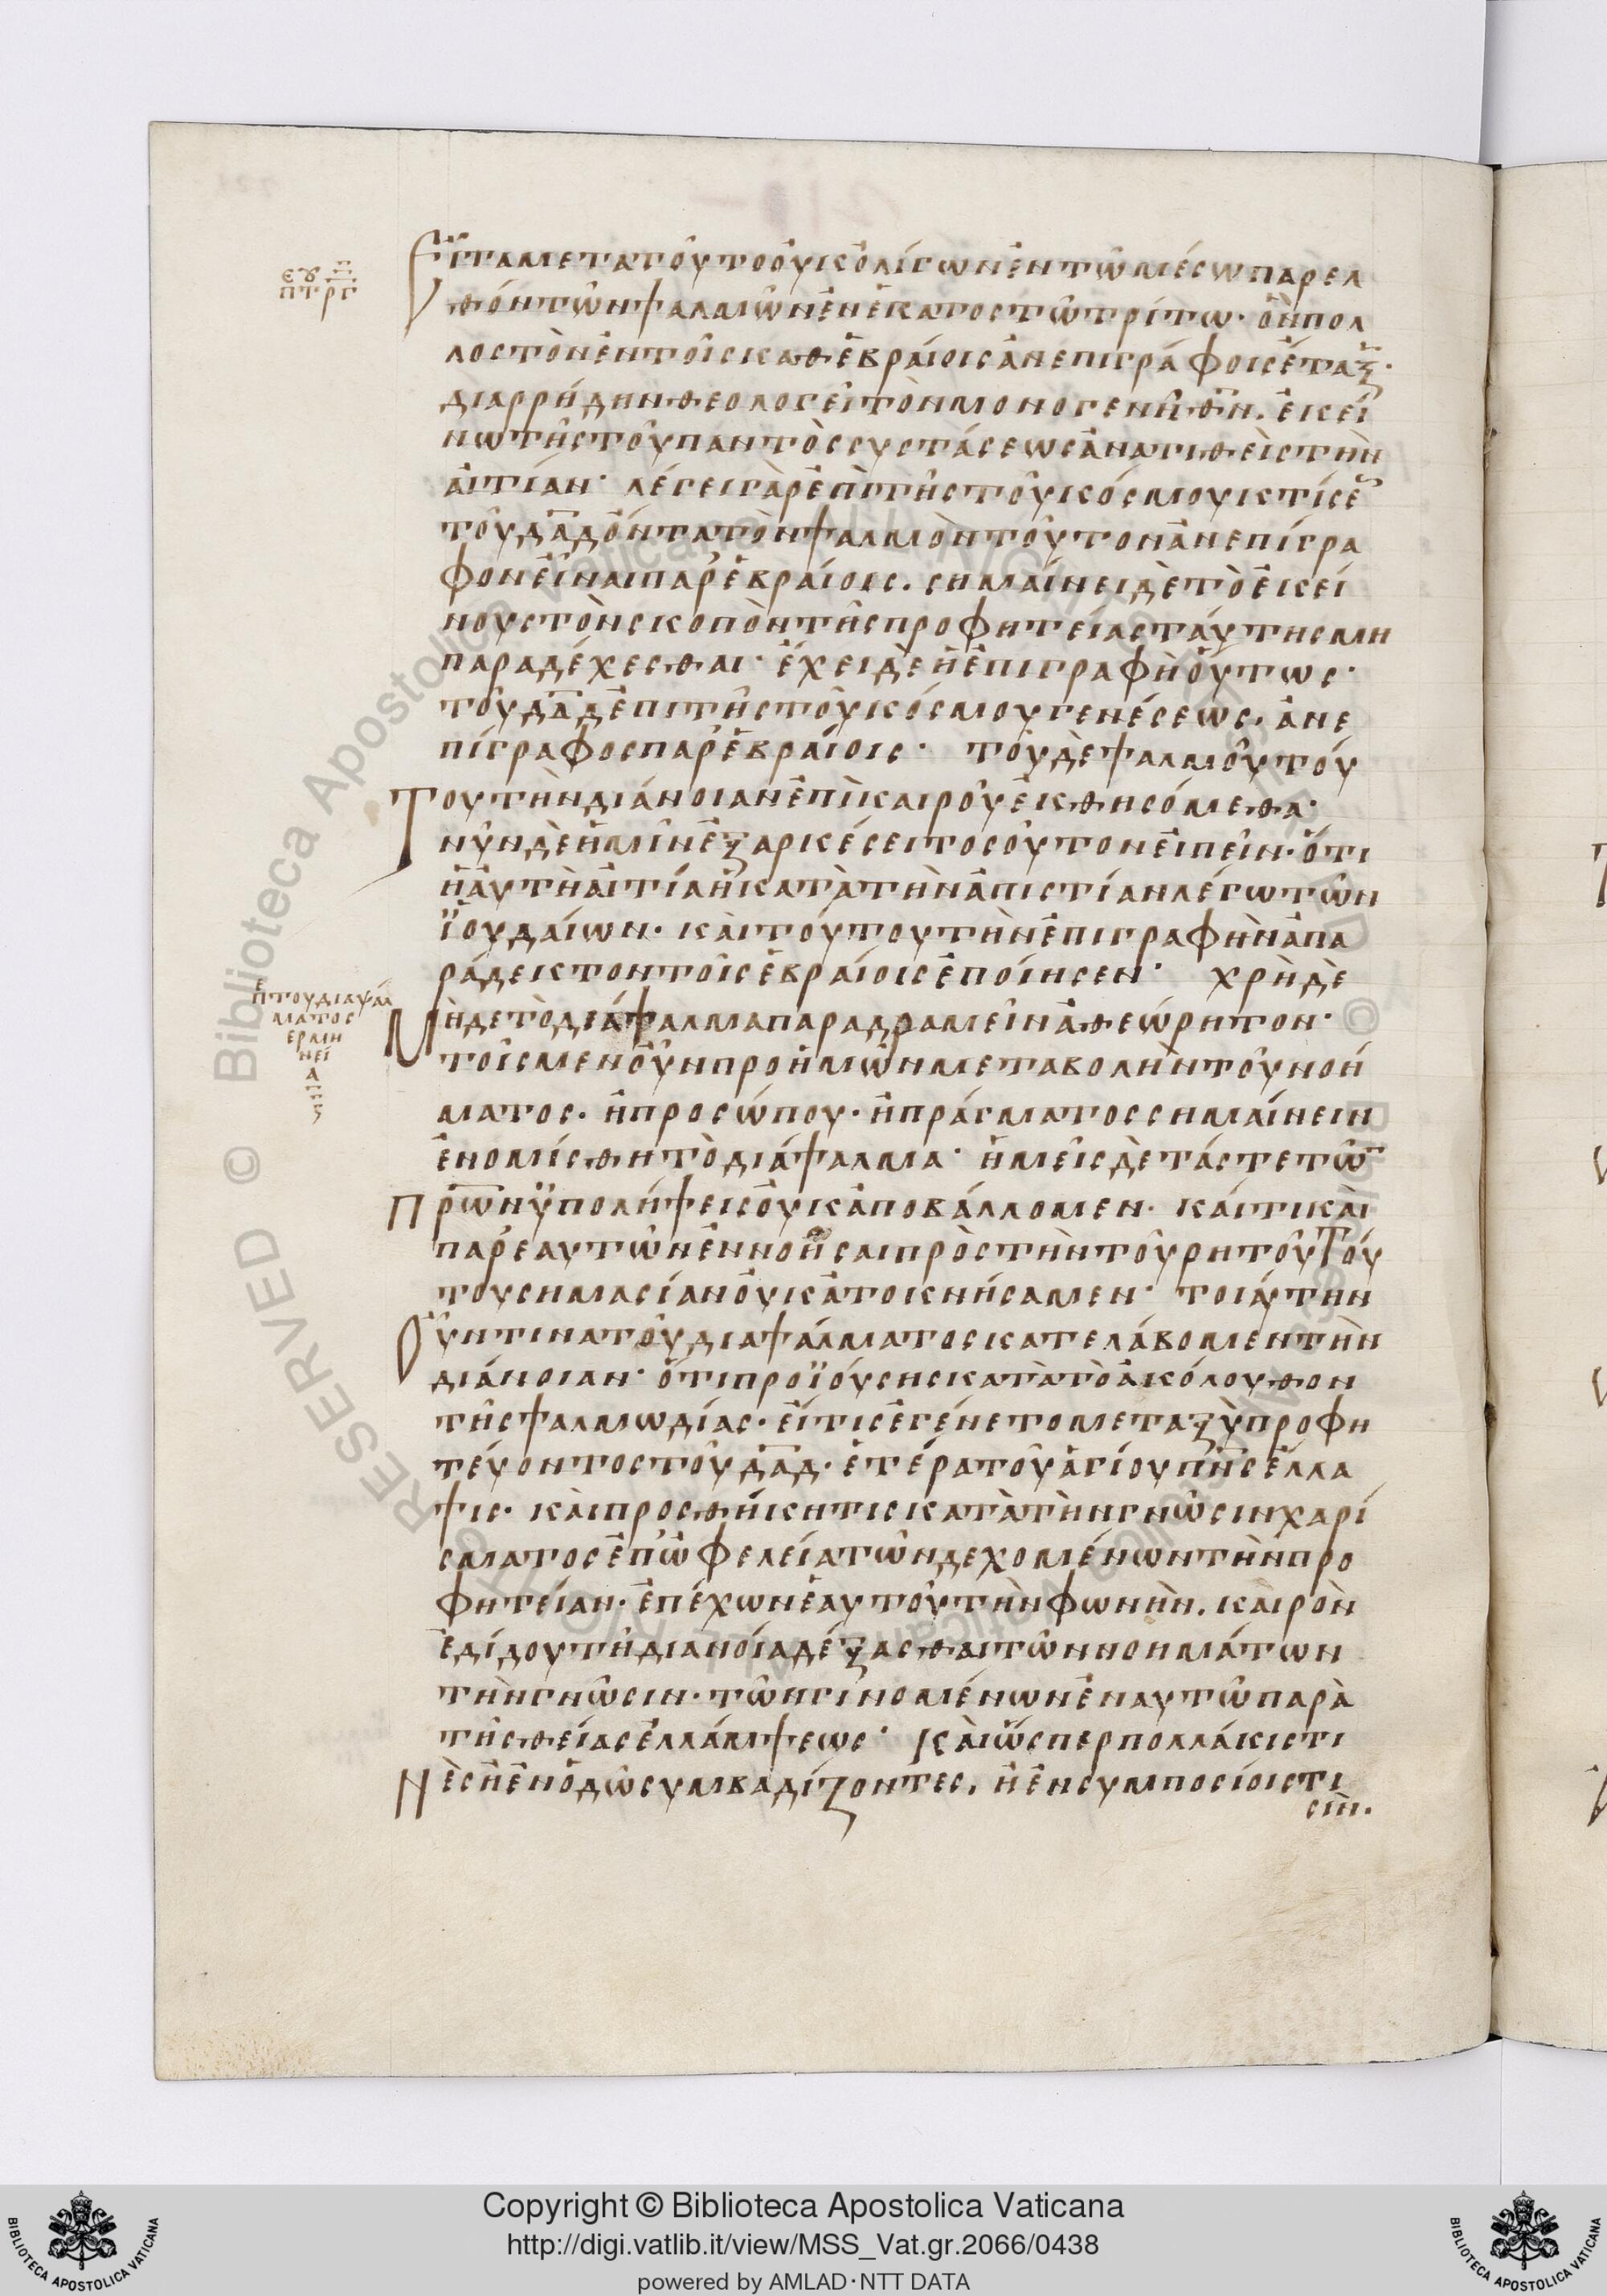 Εἶτα μετὰ τοῦτο οὐκ ὀλίγων ἐν τῶ μέσω παρελ
θόντων ψαλμῶν ἐν ἑκατοστῶ τρίτω· ὃν πολ
λοστὸν ἐν τοῖς καθ ἑβραίοις ἀνεπιγράφοις ἔταξ·
διαρρήδην θεολογεῖ τὸν μονογενῆ θν. ἐκεί
νω τῆς τοῦ παντὸς συστάσεως ἀνατιθεὶς τὴν
αἰτίαν· λέγει γὰρ ἐπὶ τῆς τοῦ κόσμου κτίσε
τοῦ δαδ ὄντα τὸν ψαλμὸν τοῦτον ἀνεπίγρα
φον εἶναι παρ' ἑβραίοις. σημαίνει δὲ τὸ ἐκεί
νους τὸν σκοπὸν τῆς προφητείας ταύτης μὴ
παραδέχεσθαι· ἔχει δὲ ἡ ἐπιγραφὴ οὕτως·
τοῦ δαδ ἐπι τῆς τοῦ κόσμου γενέσεως, ἀνε
πίγραφος παρ' ἑβραίοις· τοῦ δὲ ψαλμοῦ τού
Του τὴν διάνοιαν ἐπὶ καιροῦ ἐκθησόμεθα·
νῦν δὲ ἡμῖν ἐξαρκέσει τοσοῦτον εἰπεῖν· ὅτι
ἡ αὐτὴ αἰτία ἡ κατὰ τὴν ἀπιστίαν λέγω τῶν
ϊουδαίων· καὶ τούτου τὴν ἐπιγραφὴν ἀπα
ράδεκτον τοῖς ἑβραίοις ἐποίησεν· χρὴ δὲ
Μὴ δε τὸ διάψαλμα παραδραμεῖν ἀθεώρητον·
τοῖς μεν οὖν προ ἡμῶν μεταβολὴν τοῦ νοή
ματος. ἢ προσώπου· ἢ πράγματος σημαίνειν
ἐνομίσθη τὸ διάψαλμα· ἡμεῖς δὲ τάς τε τῶ
Πρων ὑπολήψεις οὐκ ἀποβάλλομεν. καί τι καὶ
παρ' ἑαυτῶν ἐννοῆσαι πρὸς τὴν τοῦ ρητοῦ Τού
του σημασίαν οὐκ ἀτοκνήσαμεν· τοιαύτην
Οὖν τινα τοῦ διαψάλματος κατελάβομεν τὴν
διάνοιαν· ὅτι προϊούσης κατὰ τὸ ἀκόλουθον
τῆς ψαλμωδίας. εἴ τις ἐγένετο μεταξὺ προφη
τεύοντος τοῦ δαδ. ἑτέρα τοῦ ἁγίου πνς ἔλλα
ψις. καὶ προσθήκη τις κατὰ τὴν γνῶσιν χαρί
σματος ἐπ' ὠφελεία τῶν δεχομένων τὴν προ
φητείαν. ἐπέχων ἑαυτοῦ τὴν φωνὴν, καιρὸν
ἐδίδου τῆ διανοία δέξασθαι τῶν νοημάτων
τὴν γνῶσιν. τῶν γινομένων ἐν αυτῶ παρὰ
τῆς θείας ἐλλάμψεως· Καὶ ὥσπερ πολλάκις τι
Νὲς ἢ ἐν ὁδῶ συμβαδίζοντες, ἢ ἐν συμποσίοις τι
σὶν.
ευ
πτ ργ
πτου διαψάλ
ματος
ερμη
νεί
α
Copyright © Biblioteca Apostolica Vaticana
http://digi.vatlib.it/view/MSS_Vat.gr.2066/0438
powered by AMLAD·NTT DATA
BIBLIOTECA APOSTOLICA VATICANA
BIBLIOTECA APOSTOLICA VATICANA